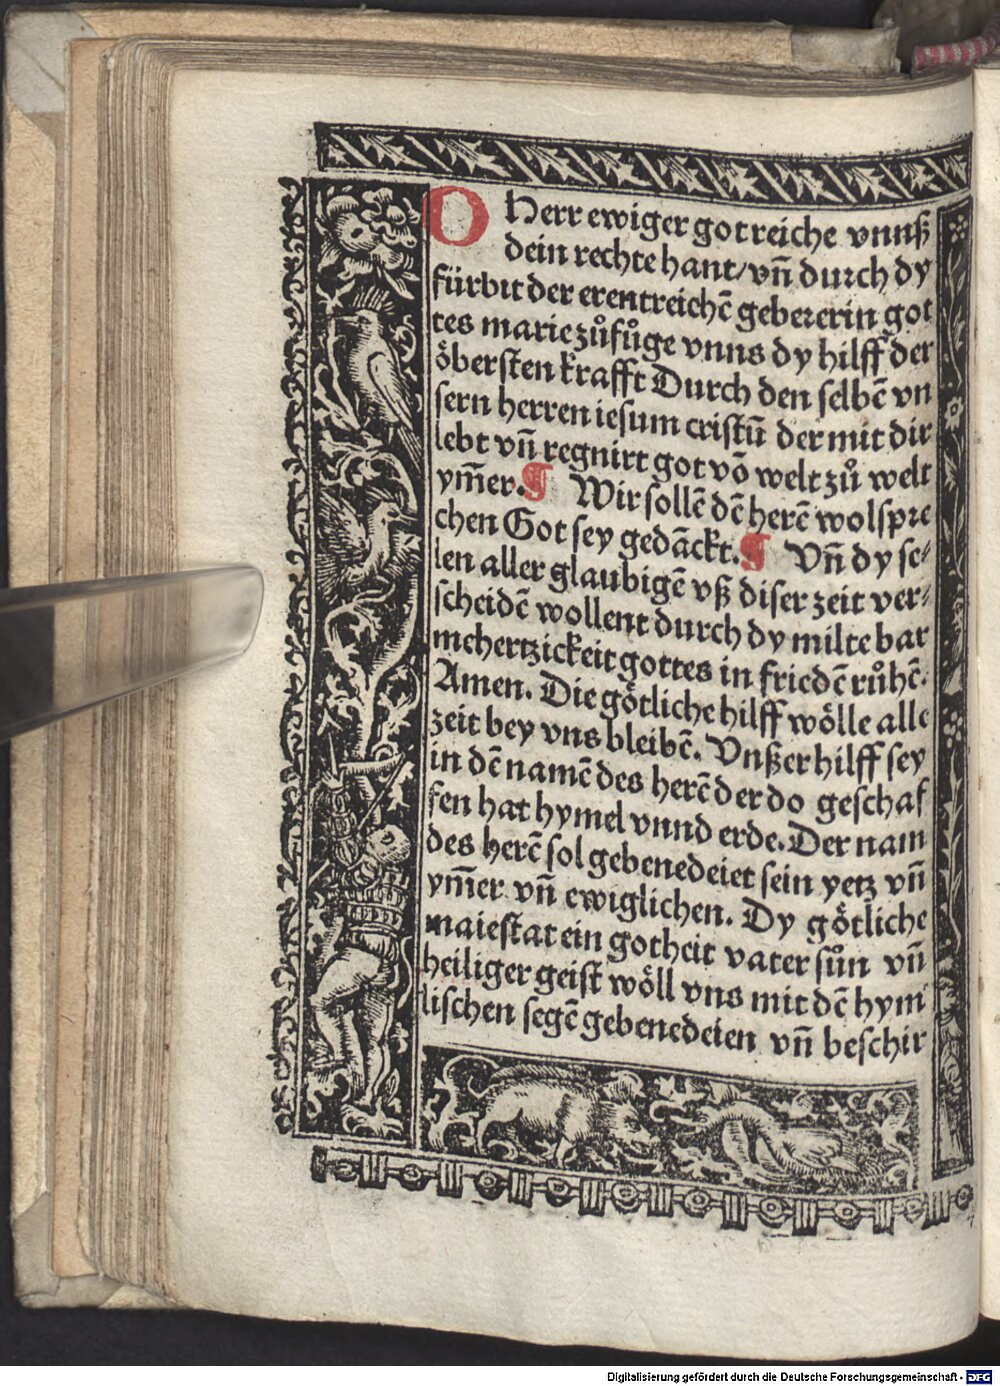 O Herr ewiger got reiche vnnß
dein rechte hant/vn̄ durch dy
fürbit der erentreichē gebererin got
tes marie zůfůge vnns dy hilff der
öbersten krafft Durch den selbē vn
sern herren iesum cristū der mit dir
lebt vn̄ regnirt got vō welt zů welt
ym̄er. ¶ Wir söllē dē herē wolspre
chen Got sey gedāckt. ¶ Vn̄ dy se⸗
len aller glaubigē vß diser zeit ver⸗
scheidē wollent durch dy milte bar
mehertzickeit gottes in friedē růhē.
Amen. Die götliche hilff wölle alle
zeit bey vns bleibē. Vnßer hilff sey
in dē namē des herē der do geschaf
fen hat hymel vnnd erde. Der nam
des herē sol gebenedeiet sein yetz vn̄
ym̄er vn̄ ewiglichen. Dy götliche
maiestat ein gotheit vater sůn vn̄
heiliger geist wöll vns mit dē hym
lischen segē gebenedeien vn̄ beschir
Digitalisierung gefördert durch die Deutsche Forschungsgemeinschaft - DFG